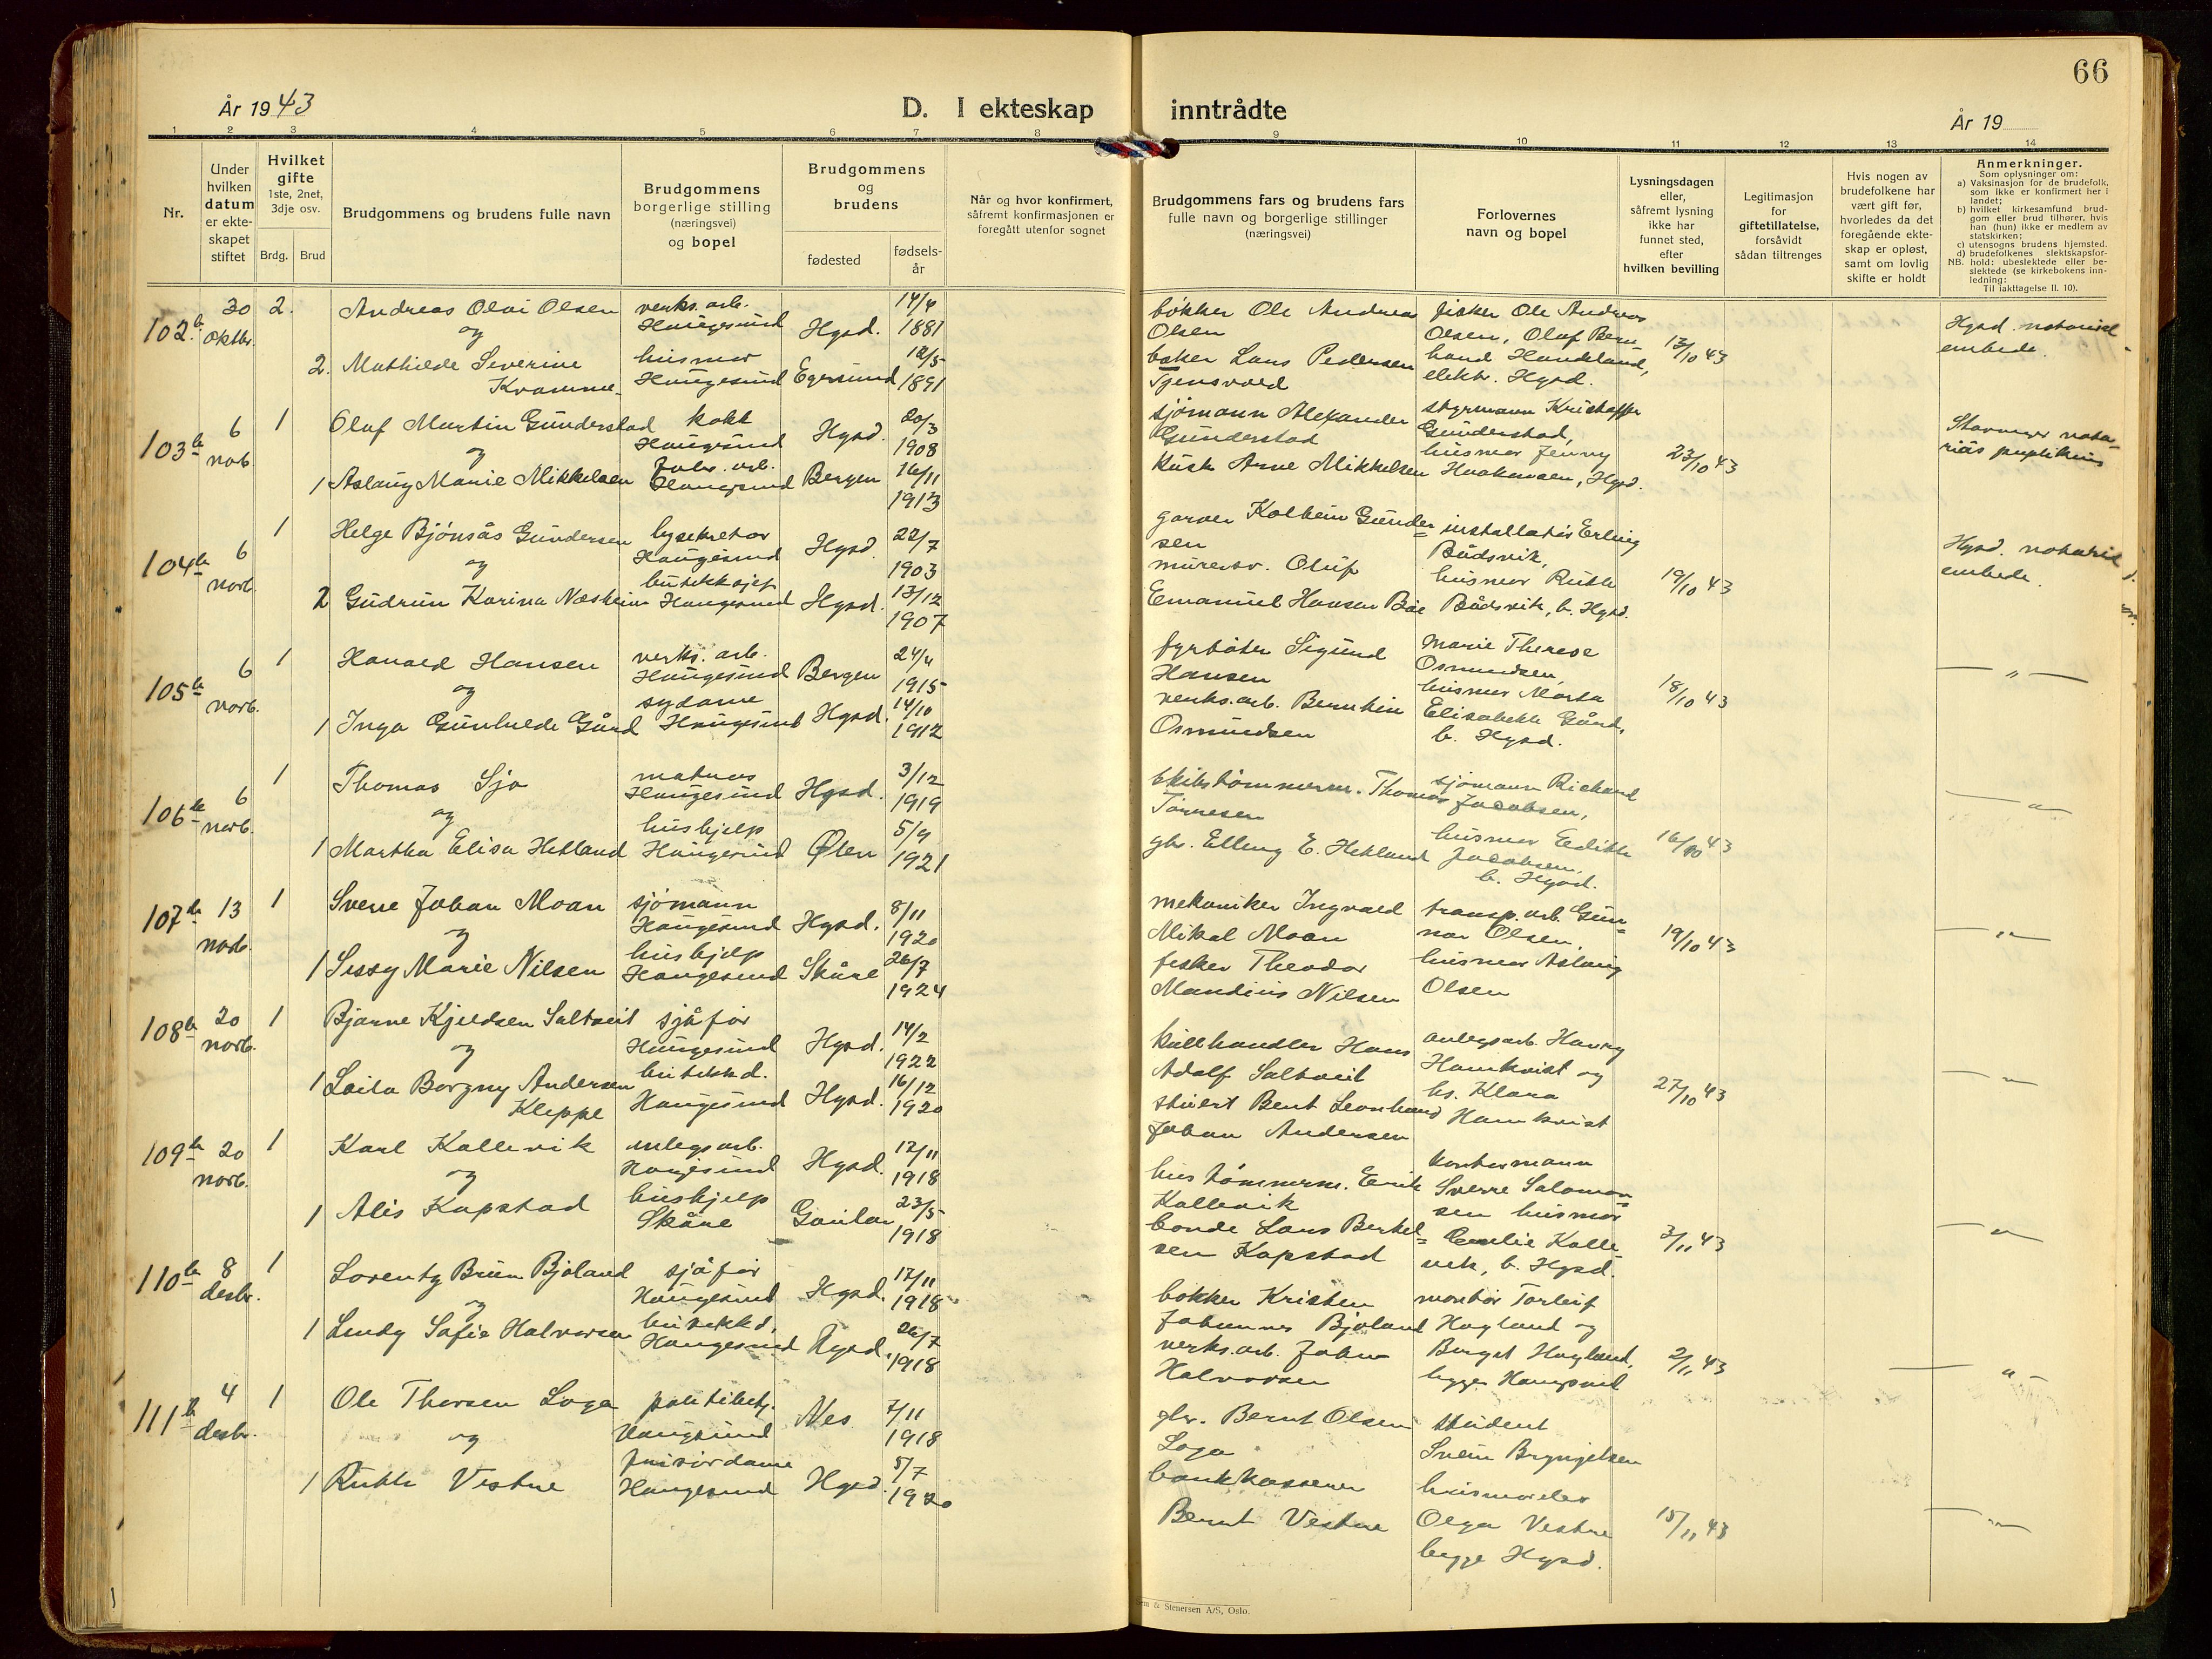 66
År 1943
D. I ekteskap inntrådte
År 19
1 2 3 4 5 6 7 8 9 10 11 12 13 14
Nr.
Under hvilken datum er ekte-skapet stiftet
Hvilket gifte
1ste, 2net, 3dje osv.
Brdg. Brud
Brudgommens og brudens fulle navn
Brudgommens borgerlige stilling (næringsvei) og bopel
Brudgommens og brudens
fødested
fødsels-år
Når og hvor konfirmert, såfremt konfirmasjonen er foregått utenfor sognet
Brudgommens fars og brudens fars fulle navn og borgerlige stillinger (næringsvei)
Forlovernes navn og bopel
Lysningsdagen eller, såfremt lysning ikke har funnet sted, efter hvilken bevilling
Legitimasjon for giftetillatelse, forsåvidt sådan tiltrenges
Hvis nogen av brudefolkene har vært gift før, hvorledes da det foregående ekte-skap er opløst, samt om lovlig skifte er holdt
Anmerkninger.
Som oplysninger om:
a) Vaksinasjon for de brudefolk, som ikke er konfirmert her i landet;
b) hvilket kirkesamfund brud-gom eller brud tilhører, hvis han (hun) ikke er medlem av statskirken;
c) utensogns brudens hjemsted.
d) brudefolkenes slektskapsfor-hold: ubeslektede eller be-slektede (se kirkebokens inn-ledning:
NB. Til iakttagelse II. 10).
102 30 oktbr. 2. Andreas Olai Olsen verks. arb. Haugesund Hgsd. 14/4 1881
og
2. Mathilde Severine Kvamme husmor Haugesund Egersund 12/5 1891
bøkker Ole Andreas Olsen
baker Lars Pedersen Tjensvold
fisker Ole Andreas Olsen, Olaf Bernhard Handeland, elektr. Hgsd.
13/10 43
Hgsd. notariel embede.
103 6 nov. 1 Olaf Martin Gunderstad kokk Haugesund Hgsd. 20/3 1908
og
1 Aslaug Marie Mikkelsen Fabr. arb. Haugesund Bergen 16/11 1913
sjømann Alexander Gunderstad
kusk Arne Mikkelsen
styrmann Kristoffer Gunderstad,
husmor Jenny Haakonsen, Hgsd.
23/10 43
Stavanger
104 6 novb. 1 Helge Bjönsås Gundersen lysekretær Haugesund Hgsd. 22/7 1903
og
2 Gudrun Karina Næsheim butikksjef Haugesund Hgsd. 13/12 1907
garver Kolbein Gundersen
murersv. Oluf Emanuel Hansen Bøe
installatør Erling Bådsvik,
husmor Ruth Bådsvik, b. Hgsd.
19/10 43
Hgsd. notariel embede.
105 6 novb. 1 Harald Hansen verks. arb. Haugesund Bergen 24/4 1915
og
1 Inga Gunhilde Gård sydame Haugesund Hgsd. 14/10 1912
fyrbøter Sigurd Hansen
verks. arb. Berntin Osmundsen
Marie Therese Osmundsen,
husmor Marta Elisabeth Gård, b. Hgsd.
18/10 43
— " —
106 6 novb. 1 Thomas Sjo matros Haugesund Hgsd. 3/12 1919
og
1 Martha Elisa Hetland hushjelp Haugesund Ølen 5/9 1921
skibstømmerm. Thomas Tønnesen
gbr. Elling E. Hetland
sjømann Richard Jacobsen,
husmor Edith Jacobsen, b. Hgsd.
16/10 43
— " —
107 13 novb. 1 Sverre Johan Moan sjømann Haugesund Hgsd. 8/11 1920
og
1 Sissy Marie Nilsen hushjelp Haugesund Skåre 26/7 1924
mekaniker Ingvald Mikal Moan
fisker Theodor Mandius Nilsen
transp. arb. Gunnar Olsen,
husmor Aslaug Olsen
19/10 43
— " —
108 20 novb. 1 Bjarne Kjeldsen Saltveit sjåfør Haugesund Hgsd. 14/2 1922
og
1 Laila Borgny Andersen Kleppe butikkd. Haugesund Hgsd. 16/12 1920
kullhandler Hans Adolf Saltveit
stuert Bent Leonhard Johan Andersen
anlegsarb. Harry Hamkvist og
hs. Klara Hamkvist
27/10 43
— " —
109 20 novb. 1 Karl Kallevik anlegsarb. Haugesund Hgsd. 12/11 1918
og
1 Alis Kapstad hushjelp Skåre Gaular 23/5 1918
hustømmerm. Erik Kallevik
bonde Lars Berthelsen Kapstad
kontormann Sverre Salomonsen
husmor Emelie Kallevik, b. Hgsd.
3/11 43
— " —
110 8 desbr. 1 Lorentz Bruun Bjoland sjåfør Haugesund Hgsd. 17/11 1918
og
1 Lindy Sofie Halvorsen butikkd. Haugesund Hgsd. 26/7 1918
bøkker Kristen Johannes Bjoland
verks. arb. Johan Halvorsen
montør Torleif Hagland og
Borgit Hagland, begge Haugesund
2/11 43
— " —
111 4 desbr. 1 Ole Thorsen Loga politibetj. Haugesund Nes 7/11 1918
og
1 Ruth Vestre frisørdame Haugesund Hgsd. 5/7 1920
gbr. Bernt Olsen Loga
bankkasserer Bernt Vestre
student Svein Bryngelsen
husmoder Olga Vestre begge Hgsd.
15/11 43
— " —
& Stenersen A/S, Oslo.